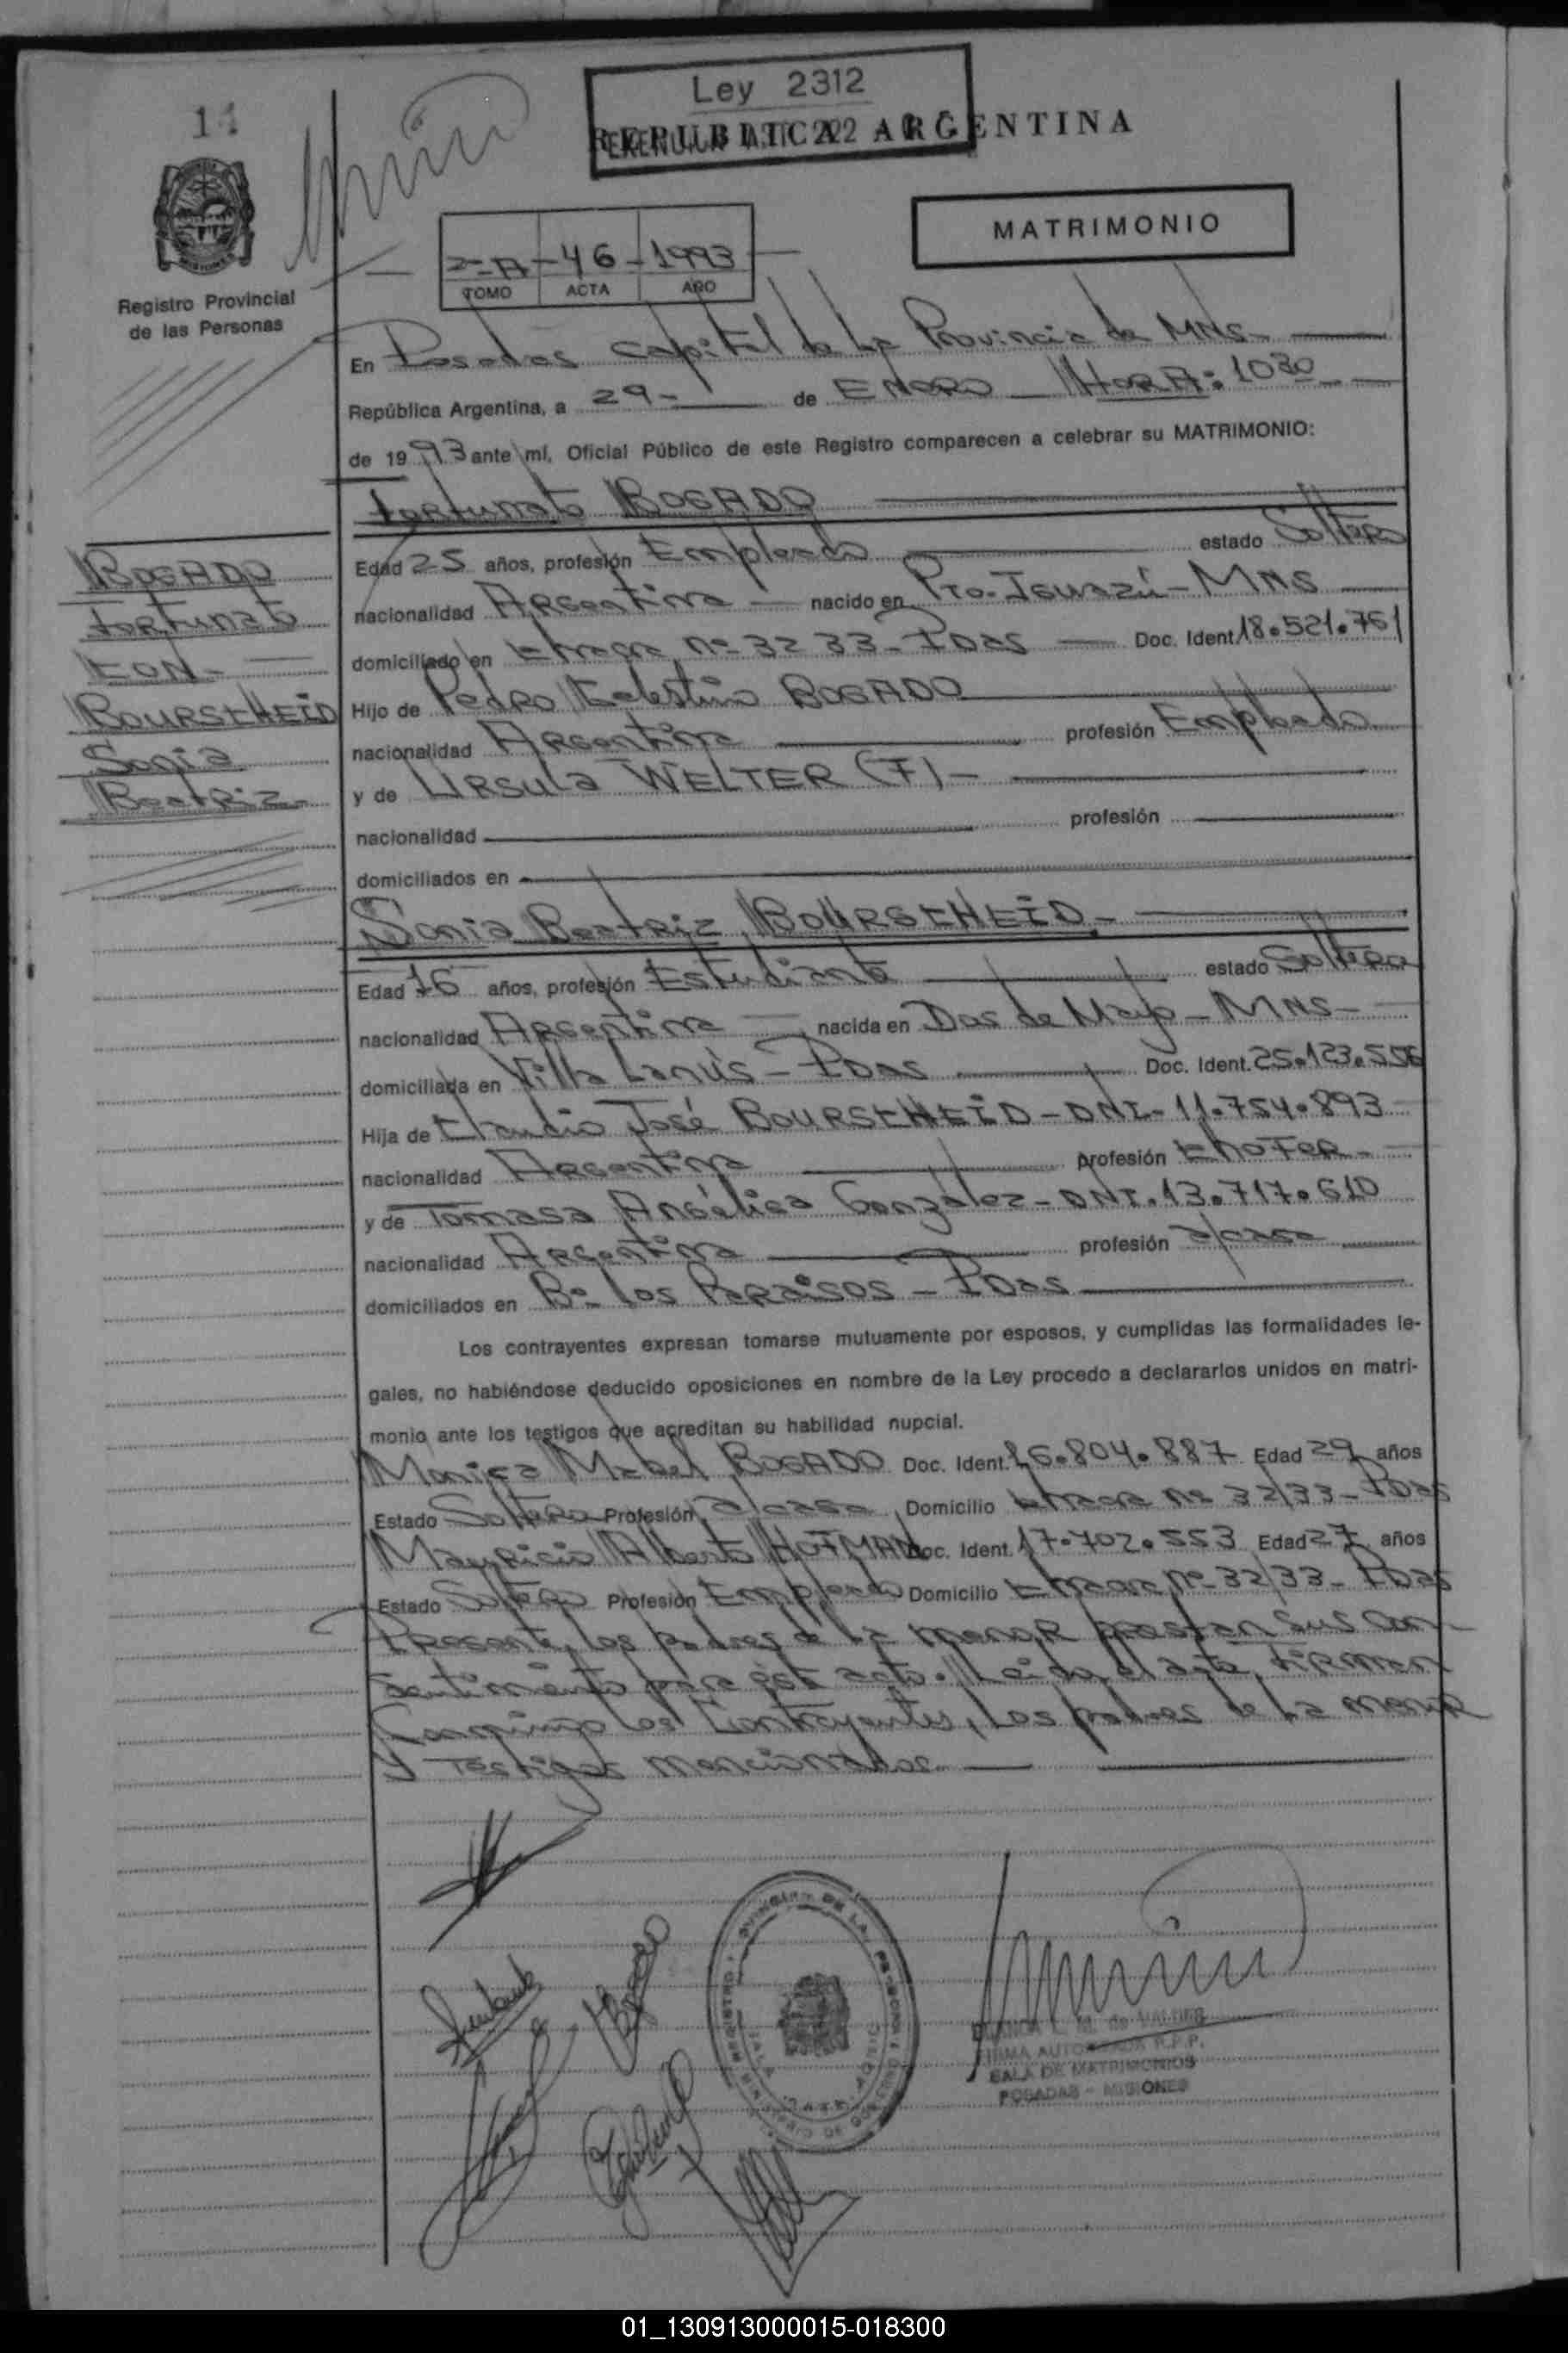 14
Ley 2312
REPUBLICA ARGENTINA
MATRIMONIO
2-A - 46 - 1993
TOMO ACTA AÑO
Registro Provincial
de las Personas
En Posadas Capital de la Provincia de MNS-
República Argentina, a 29- de ENERO HORA: 1030
de 1993 ante mí, Oficial Público de este Registro comparecen a celebrar su MATRIMONIO:
Fortunato BOGADO
BOGADO
Fortunato
CON-
BOURSCHEID
Sonia
Beatriz-
Edad 25 años, profesión Empleado estado Soltero
nacionalidad Argentina nacido en Pto. Iguazú - MNS
domiciliado en Nº 3233 - Pdas Doc. Ident. 18.521.761
Hijo de Pedro Celestino BOGADO
nacionalidad Argentina profesión Empleado
y de Ursula WELTER (F) -
nacionalidad profesión
domiciliados en
Sonia Beatriz BOURSCHEID-
Edad 16 años, profesión Estudiante estado Soltera
nacionalidad Argentina nacida en Dos de Mayo - MNS-
domiciliada en Villa Lanús - Pdas Doc. Ident. 25.123.556
Hija de Claudio José BOURSCHEID - DNI - 11.754.893
nacionalidad Argentina profesión Chofer-
y de Tomasa Angélica González - DNI. 13.717.610
nacionalidad Argentina profesión a/casa
domiciliados en Bº los Paraisos - Pdas
Los contrayentes expresan tomarse mutuamente por esposos, y cumplidas las formalidades le-
gales, no habiéndose deducido oposiciones en nombre de la Ley procedo a declararlos unidos en matri-
monio ante los testigos que acreditan su habilidad nupcial.
Monica Mabel BOGADO Doc. Ident. 16.804.887 Edad 29 años
Estado Soltera Profesión a/casa Domicilio Nº 32/33 - Pdas
Mauricio Alberto HOTMAN Doc. Ident. 17.702.553 Edad 27 años
Estado Soltero Profesión Empleado Domicilio Nº 32/33 - Pdas
Presente los padres de la menor prestan sus con
sentimiento para este acto. Leida el acta, firman
Conmigo los Contrayentes, los padres de la menor
y Testigos mencionados.
FIRMA AUTORIZADA R.P.P.
SALA DE MATRIMONIOS
POSADAS - MISIONES
01_130913000015-018300